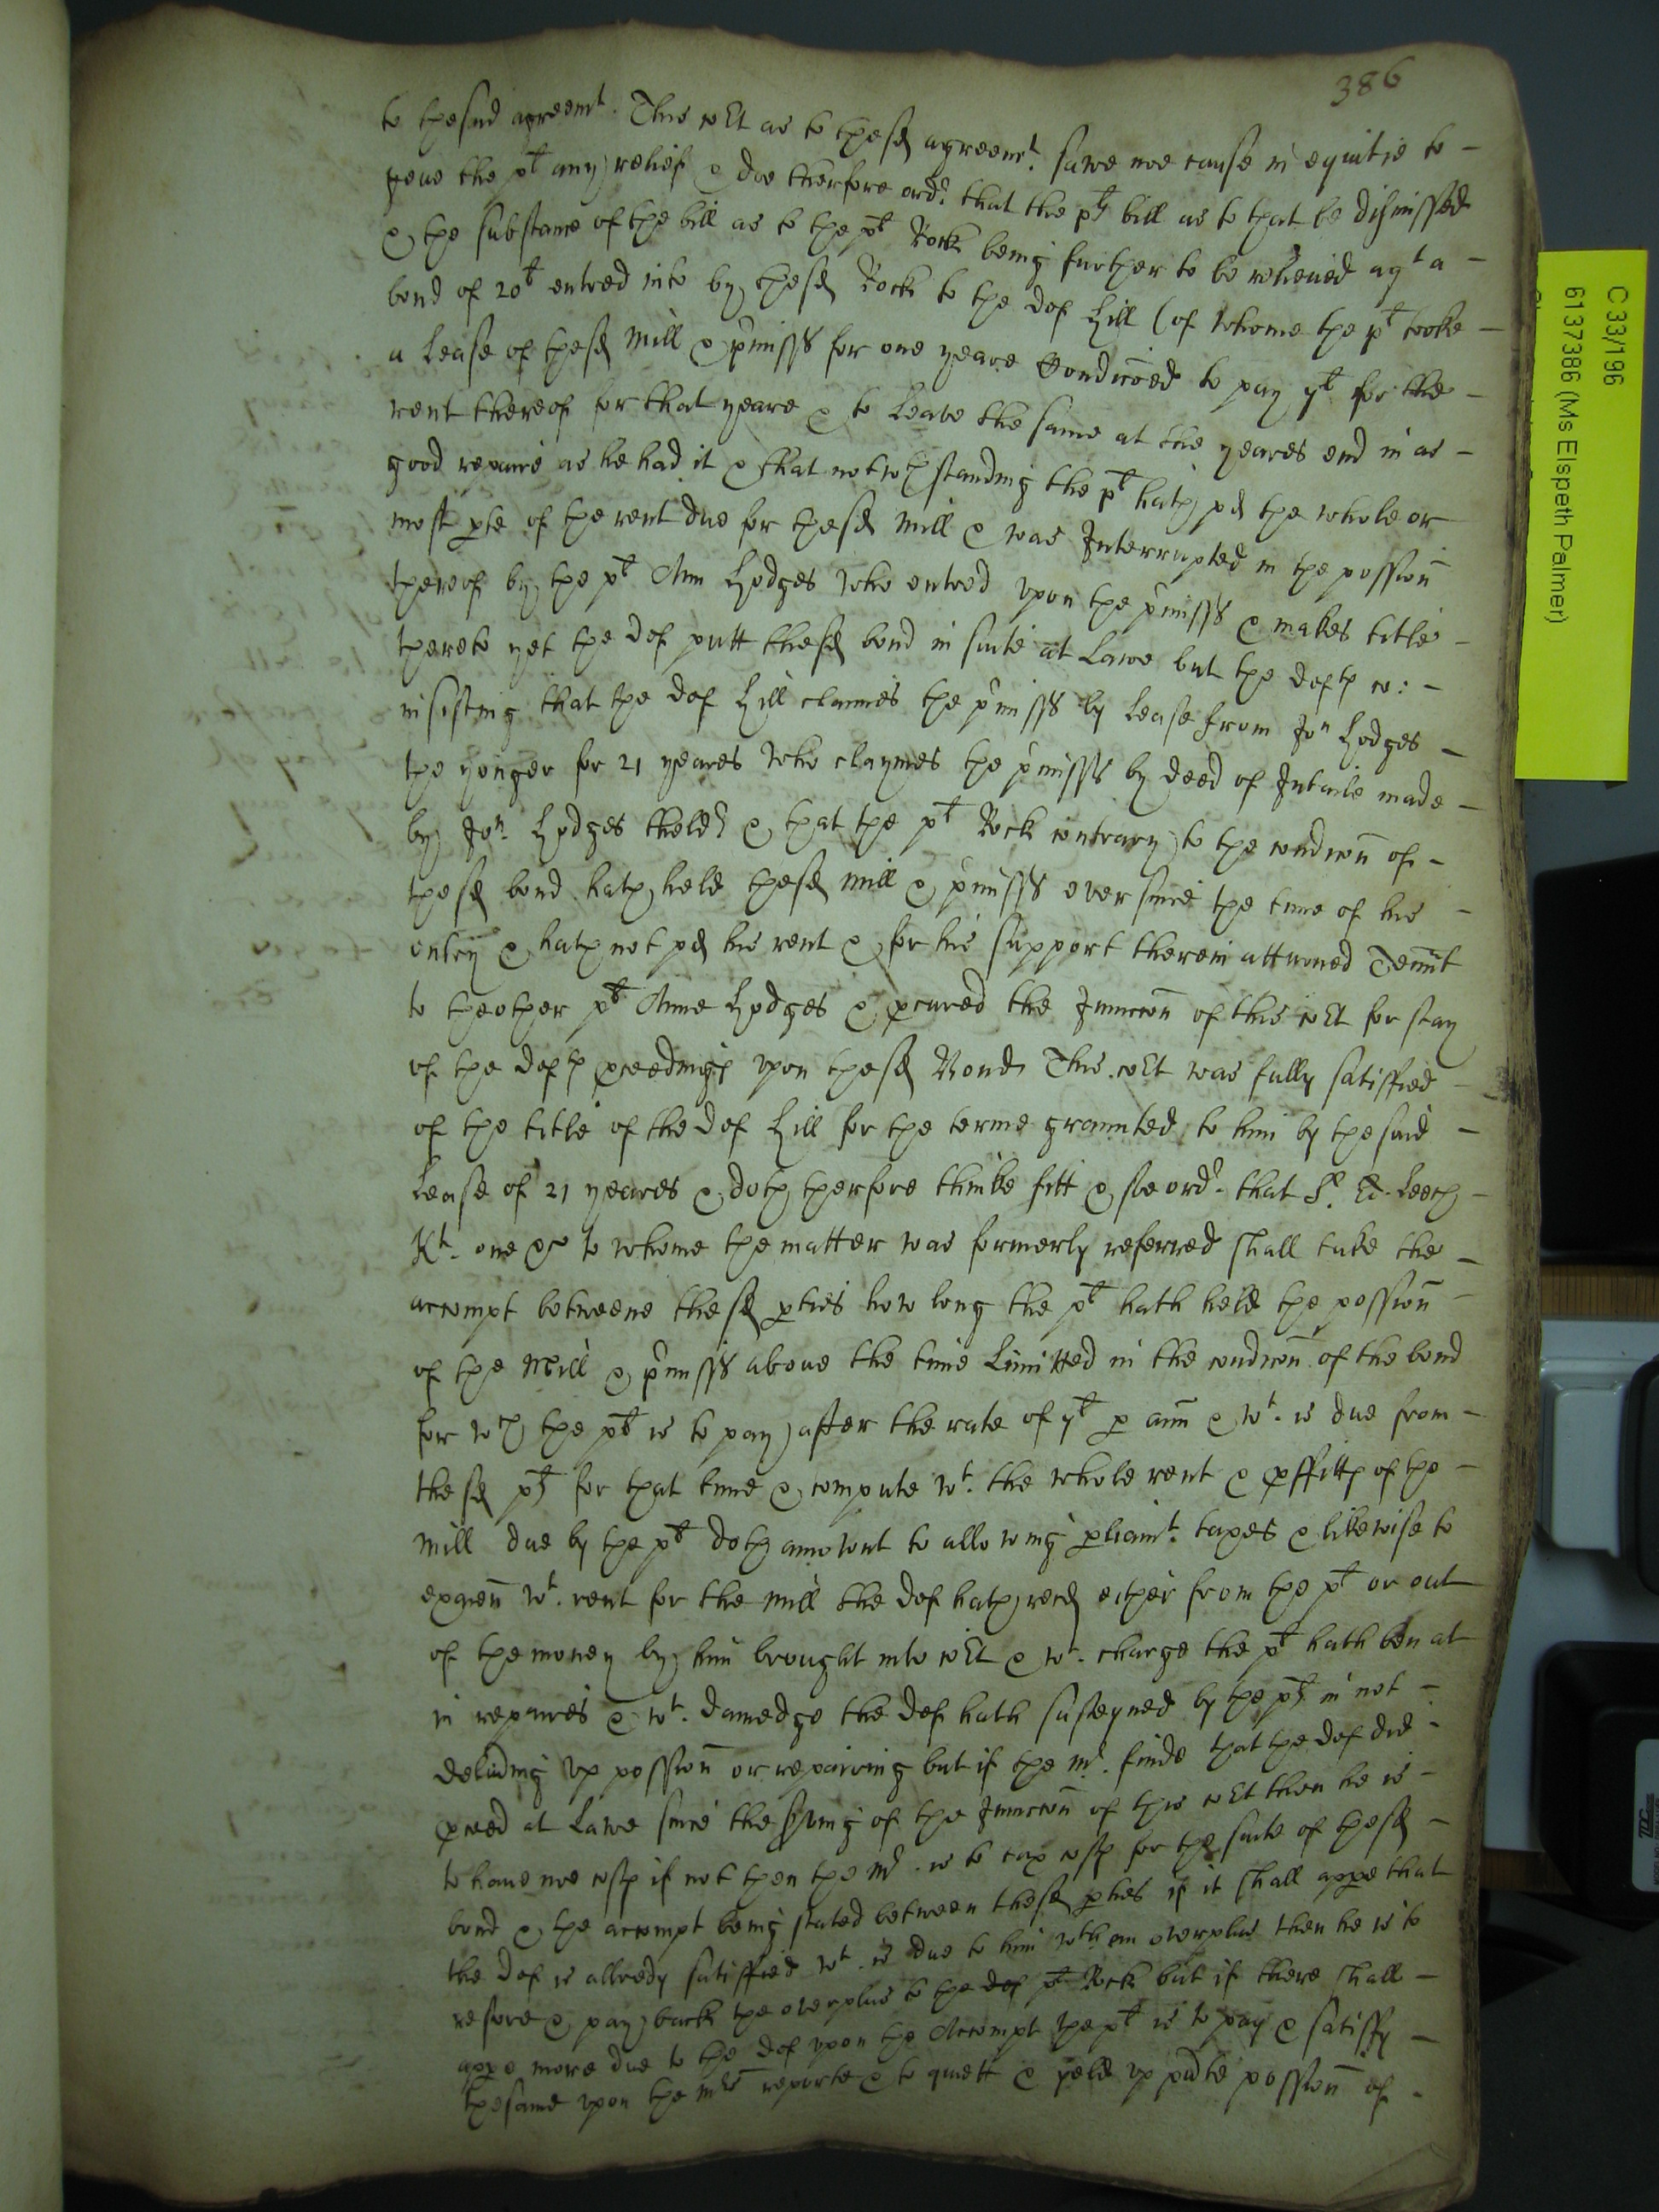 386
to thesaid agreemt. This cot as to thesd agreemt. sawe noe cause in equitie to -
geve the plt any relief & doe therfore ordr. that the plts bill as to that be dismissed
& the substance of the bill as to the plt Rock being further to be releived agt a -
bond of 20l entred into by thesd Rock to the def Hill (of whome the plt tooke -
a Lease of thesd Mill & p'misss for one yeare Condicoed to pay 7l for the -
rent thereof for that yeare & to leave the same at the yeares end in as -
good repaire as he had it & that notwthstanding the plt hath pd the whole or
most pte of the rent due for thesd Mill & was Interrupted in the possion
thereof by the plt Ann Hodges who entred vpon the p'misss & makes title -
thereto yet the def putt thesd bond in suite at Lawe but the defts co: -
insisting that the def Hill claimes the p'misss by Lease from Jon Hodges -
the yonger for 21 yeares who claymes the p'misss by deed of Intaile made -
by Jon. Hodges theldr & that the plt Rock contrary to the condicon of -
thesd bond hath held thesd Mill & p'misss ever since the time of his -
entry & hath not pd his rent & for his support therein atturned Tennt
to theother plt Anne Hodges & pcured the Iniuncon of this cot for stay
of the defts pceedings vpon thesd Bond This cot was fully satisfied -
of the title of the def Hill for the terme graunted to him by the said -
Lease of 21 yeares & doth therfore thinke fitt & soe ordr. that Sr. Ed. Leech -
Kt. one &c to whome the matter was formerly referred shall take the -
accompt betweene thesd pties how long the plt hath held the possion -
of the Mill & p'misss above the time Limitted in the condicon of the bond
for wch the plt is to pay after the rate of 7l p ann & wt. is due from -
thesd plts for that time & compute wt. the whole rent & pffitts of the -
Mill due by the plt doth amount to allowing pliamt. taxes & likewise to
exaien wt. rent for the Mill the def hath recd either from the plt or out
of the money by him brought into cot & wt. charge the plt hath ben at
in repaires & wt. damedge the def hath susteyned by the plts in not -
deliuing vp possion or repairing but if the Mr. finde that the def did -
pceed at Lawe since the sving of the Iniuncon of this cot then he is -
to have noe costs if not then the Mr. is to tax costs for the suite of thesd -
bond & the accompt being stated between thesd pties if it shall appe that
the def is allredy satisfied wt. is due to him wth an overplus then he is to
restore & pay back the overplus to the def plt Rock but if there shall -
appe more due to the def vpon the Accompt the plt is to pay & satisfy -
thesame vpon the Mrs reporte & to quiett & yeld vp p'nte possion of -
C 33/196
6137386 (Ms Elspeth Palmer)